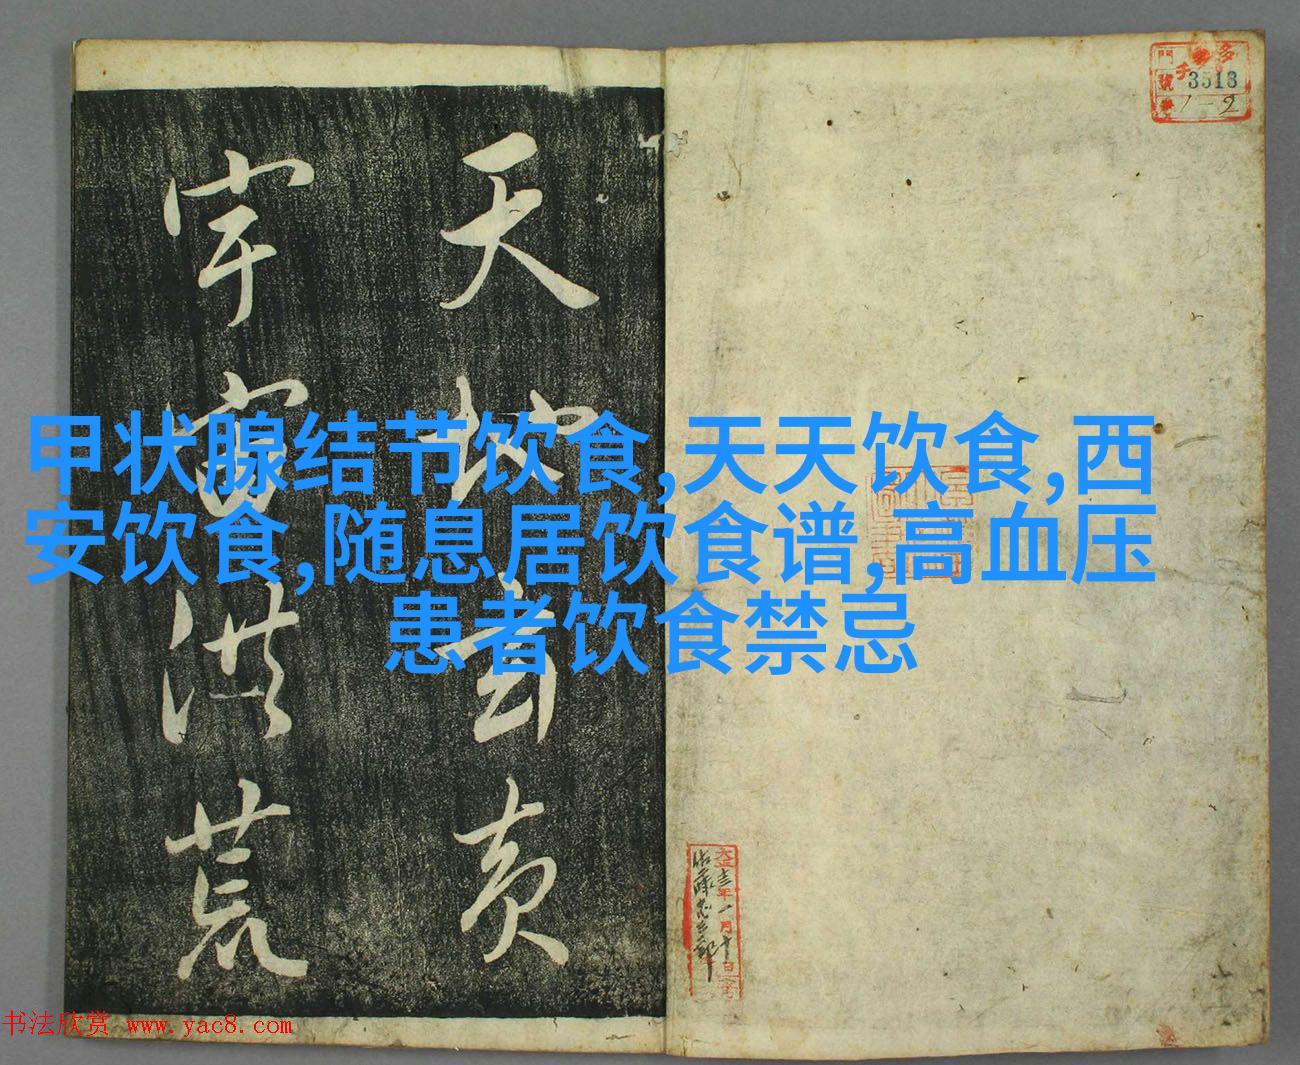 甲状腺结节饮食,天天饮食,西
安饮食,随息居饮食谱,高血压
患者饮食禁忌
天地玄黄
宇宙洪荒
3513
1-2
大正十三年一月十日
书法欣赏 www.yac8.com